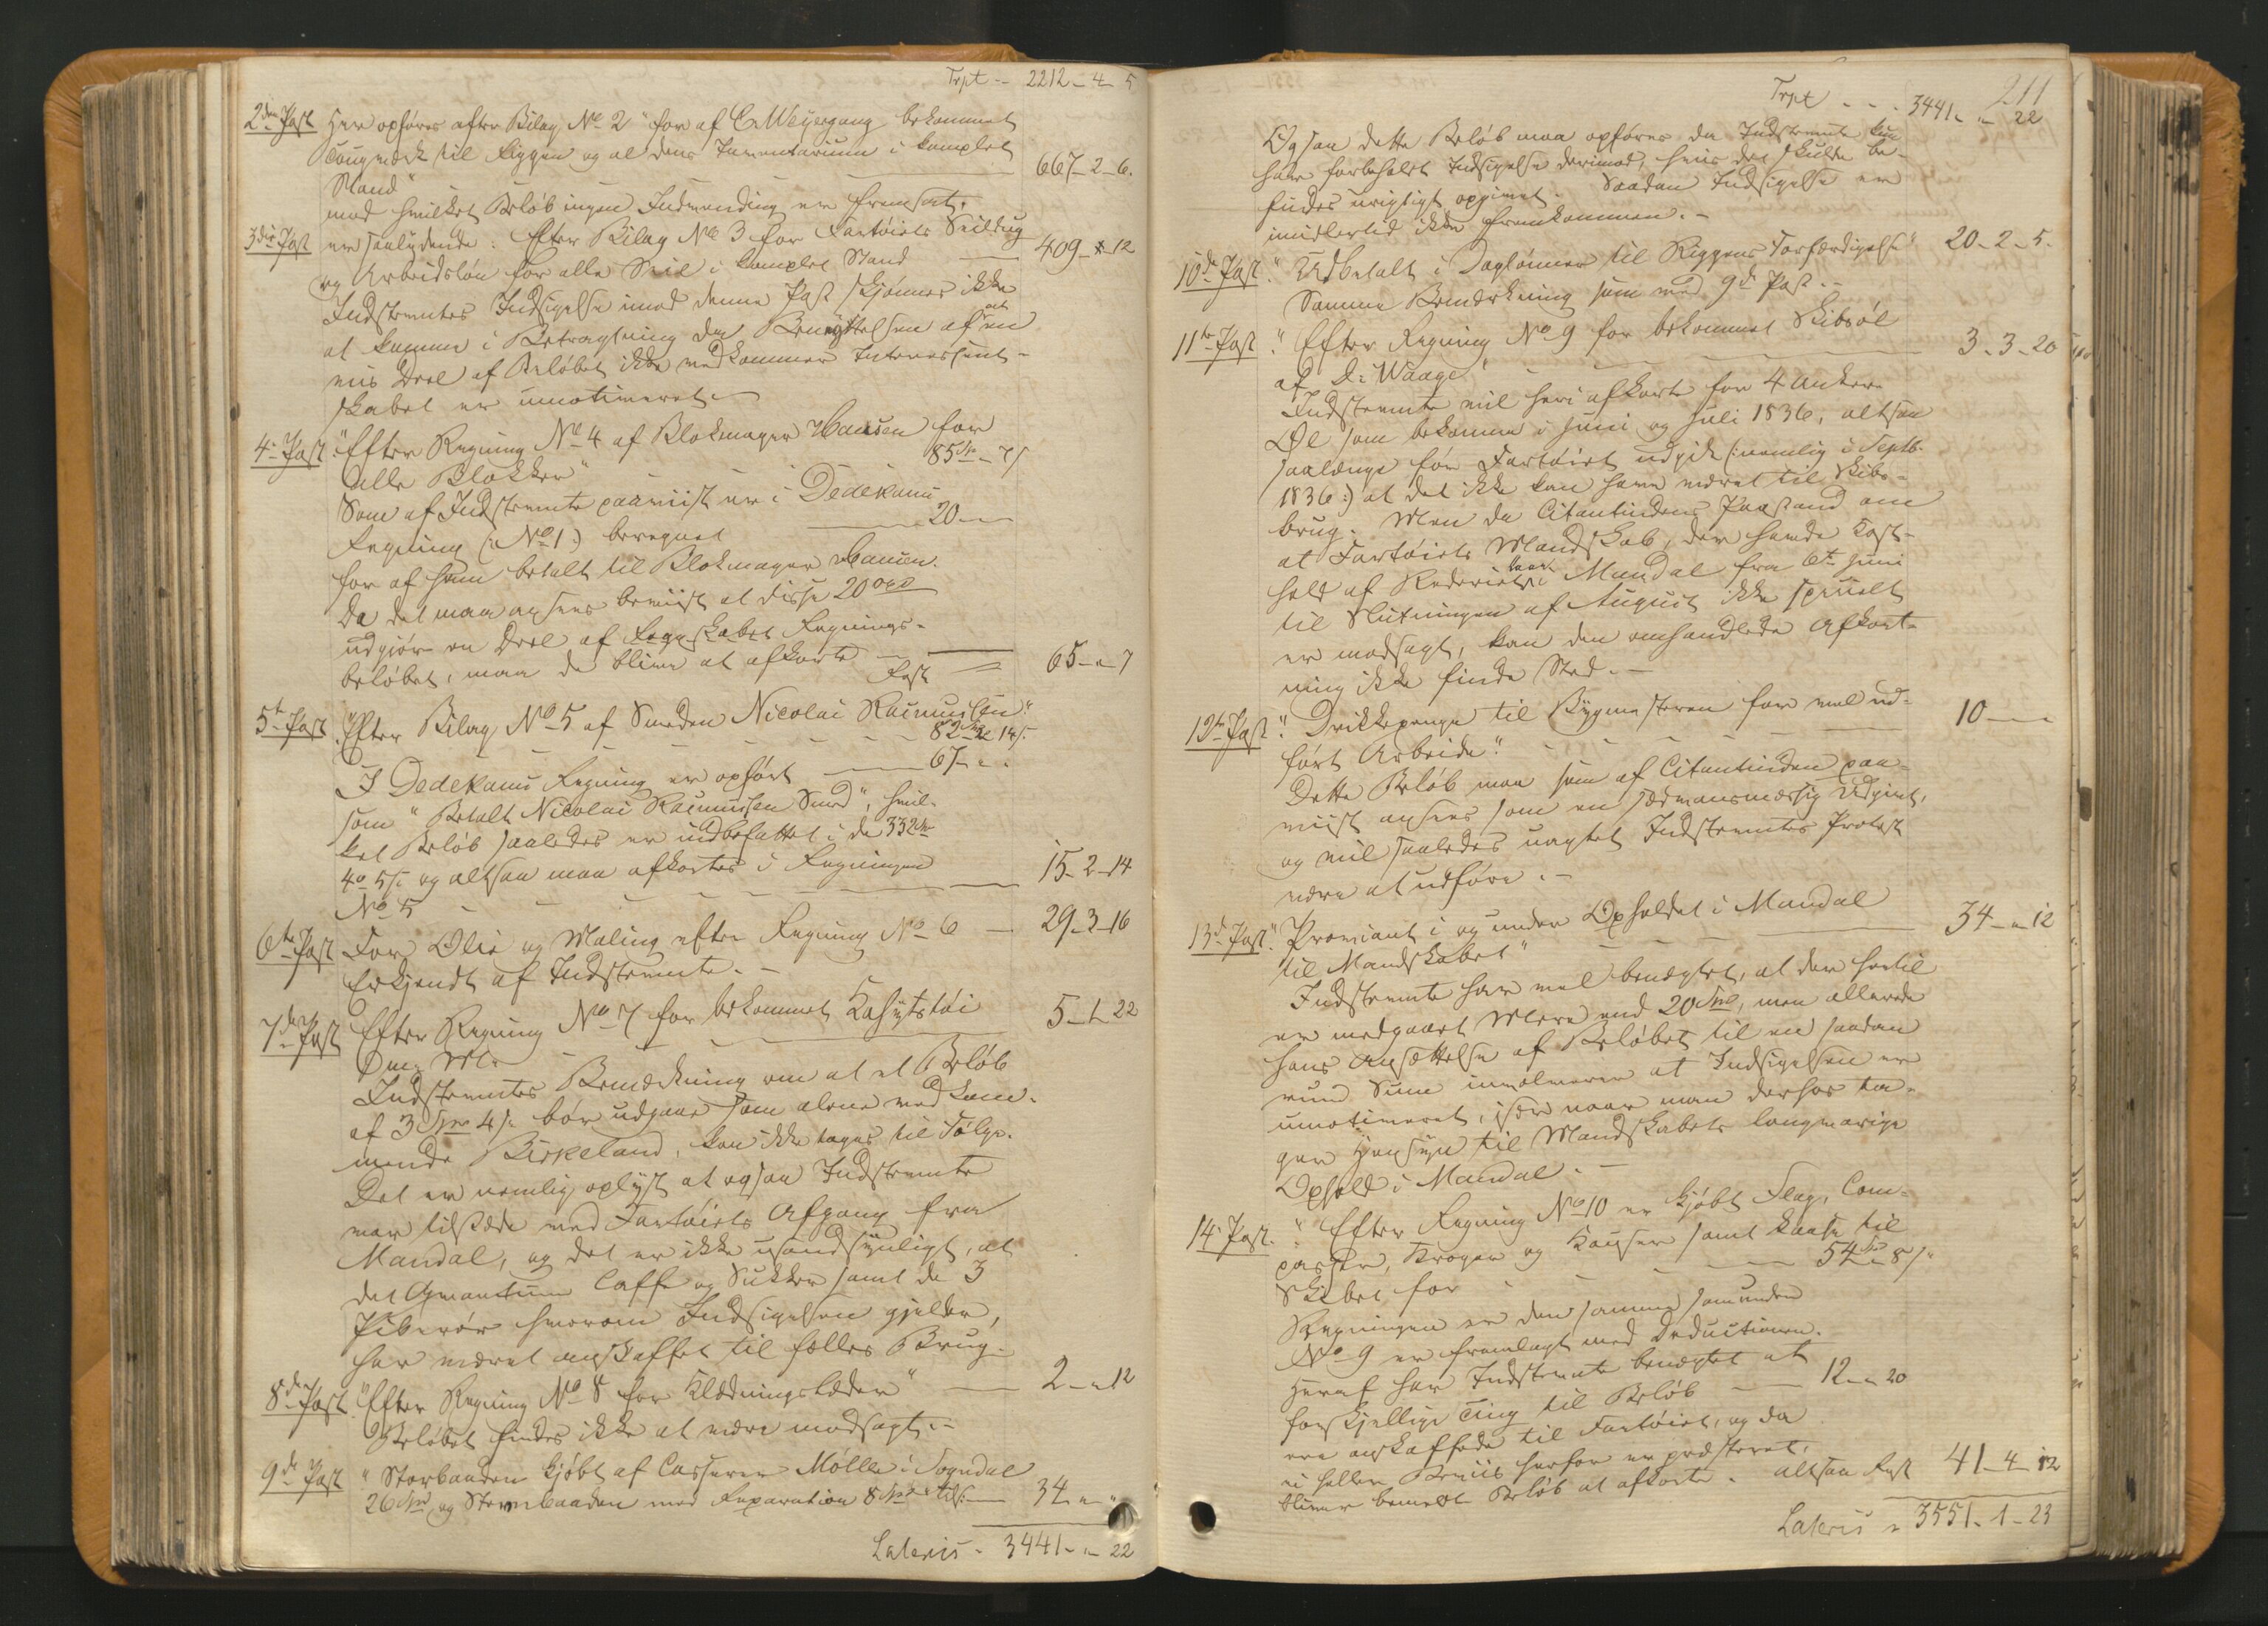 Trpt -- 2212 - 4 - 5
2den Post Her opføres efter Bilag No 2 "for af C. Weyergang bekommet
Tougværk til Riggen og al dens Inventarium i komplet
Stand" 667 - 2 - 6.
mod hvilket Beløb ingen Indvending er fremsat.
3die Post er saalydende: Efter Bilag No 3 for Fartøiets Seildug
og Arbeidsløn for alle Seil i komplet Stand 409 - 4 - 12
Indstevntes Indsigelse imod denne Post skjønnes ikke
at komme i Betragtning da Benyttelsen af en
vis Deel af Beløbet ikke vedkommer Interessent-
skabet er umotiveret.
4. Post "Efter Regning No 4 af Blokmager Hansen for
alle Blokker" 85 Sp - 7 s
Som af Indstevnte paaviist er i Dedekams
Regning (: No 1 :) beregnet 20 -
for af ham betalt til Blokmager Hansen.
Da det maa ansees beviist at disse 20 Spd
udgjør en Deel af Regnskabet Regnings-
beløbet, maa de blive at afkorte
Rest 65 - " - 7
5te Post "Efter Bilag No 5 af Smeden Nicolai Rasmussen"
82 Sp 2 14 s.
I Dedekams Regning er opført 67 - " -
som "Betalt Nicolai Rasmussen Smed", hvil-
ket Beløb saaledes er indbefattet i de 332 Sp
4 o 5 s. og altsaa maa afkortes i Regningen
No 5 15 - 2 - 14
6te Post For Olie og Maling efter Regning No 6 29 - 3 - 16
Erkjendt af Indstevnte. -
7de Post Efter Regning No 7 for bekommet Kahytstøi
5 - 1 - 22
Indstevntes Bemærkning om at et Beløb
af 3 Spd 4 s. bør udgaae som alene vedkom-
mende Birkeland, kan ikke tages til Følge.
Det er nemlig oplyst at ogsaa Indstevnte
var tilstede ved Fartøiets Afgang fra
Mandal, og det er ikke usandsynligt, at
det Qvantum Caffe og Sukker samt de 3
Piberør hvorom Indsigelsen gjelder,
har været anskaffet til fælles Brug.
8de Post "Efter Regning No 8 for Klædningslæder" 2 - " - 12
Beløbet findes ikke at være modsagt. -
9de Post "Storbaaden kjøbt af Casserer Mølle i Sogndal
26 Spd og Stormbaaden med Reparation 8 Spd tils: 34 - " - "
Lateris - 3441 - " - 22
211
Trpt - - - 3441 - " - 22
Ogsaa dette Beløb maa opføres da Indstevnte kun
har forbeholdt Indsigelse derimod, hvis det skulde be-
findes urigtigt opgivet. Saadan Indsigelse er
imidlertid ikke fremkommen. -
10de Post "Udbetalt i Daglønner til Riggens Forfærdigelse" 20 - 2 - 5.
Samme Bemærkning som ved 9de Post. -
11te Post "Efter Regning No 9 for bekommet Skibsøl
af D: Waage" 3 - 3 - 20
Indstevnte vil heri afkorte for 4 Anker
Øl som bekomne i Juni og Juli 1836, altsaa
saalænge før Fartøiet udgik (: nemlig i Septb.
1836 :) at det ikke kan have været til Skibs-
brug. Men da Citantindens Paastand om
at Fartøiets Mandskab, der havde Kost-
hold af Rederiet, var i Mandal fra 6te Juni
til Slutningen af August ikke specielt
er modsagt, kan den omhandlede Afkort-
ning ikke finde Sted. -
12te Post "Drikkepenge til Bygmesteren for vel ud-
ført Arbeide" 10 - -
Dette Beløb maa som af Citantinden paa-
viist ansees som en sædvansmæssig Udgivt,
og vil saaledes uagtet Indstevntes Protest
være at udføre. -
13de Post "Proviant i og under Opholdet i Mandal
til Mandskabet" 34 - " - 12
Indstevnte har vel benægtet, at der hertil
er medgaaet Mere end 20 Spd, men allerede
hans Ansættelse af Beløbet til en saadan
rund Sum involverer at Indsigelsen er
umotiveret, især naar man derhos ta-
ger Hensyn til Mandskabets langvarige
Ophold i Mandal. -
14. Post. "Efter Regning No 10 er kjøbt Flag, Com-
passer, Kroger og Kouser samt Kaabe til
Skibet for 54 Sp " 8 s
Regningen er den samme som under
No 9 er fremlagt med Deductionen.
Heraf har Indstevnte benægtet at
forskjellige Ting til Beløb 12 - " - 20
ere anskaffede til Fartøiet, og da
ei heller Beviis herfor er præsteret,
bliver bemeldte Beløb at afkorte. altsaa Rest 41 - 4 - 12
Lateris - 3551 - 1 - 23